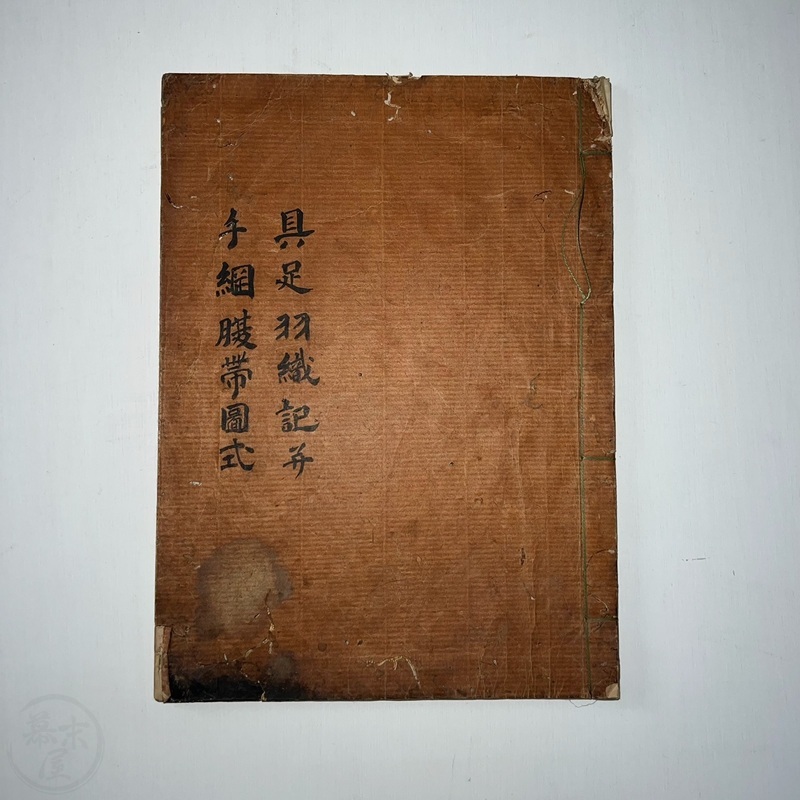 具足羽織記并
手綱腹帯圖式
幕末屋